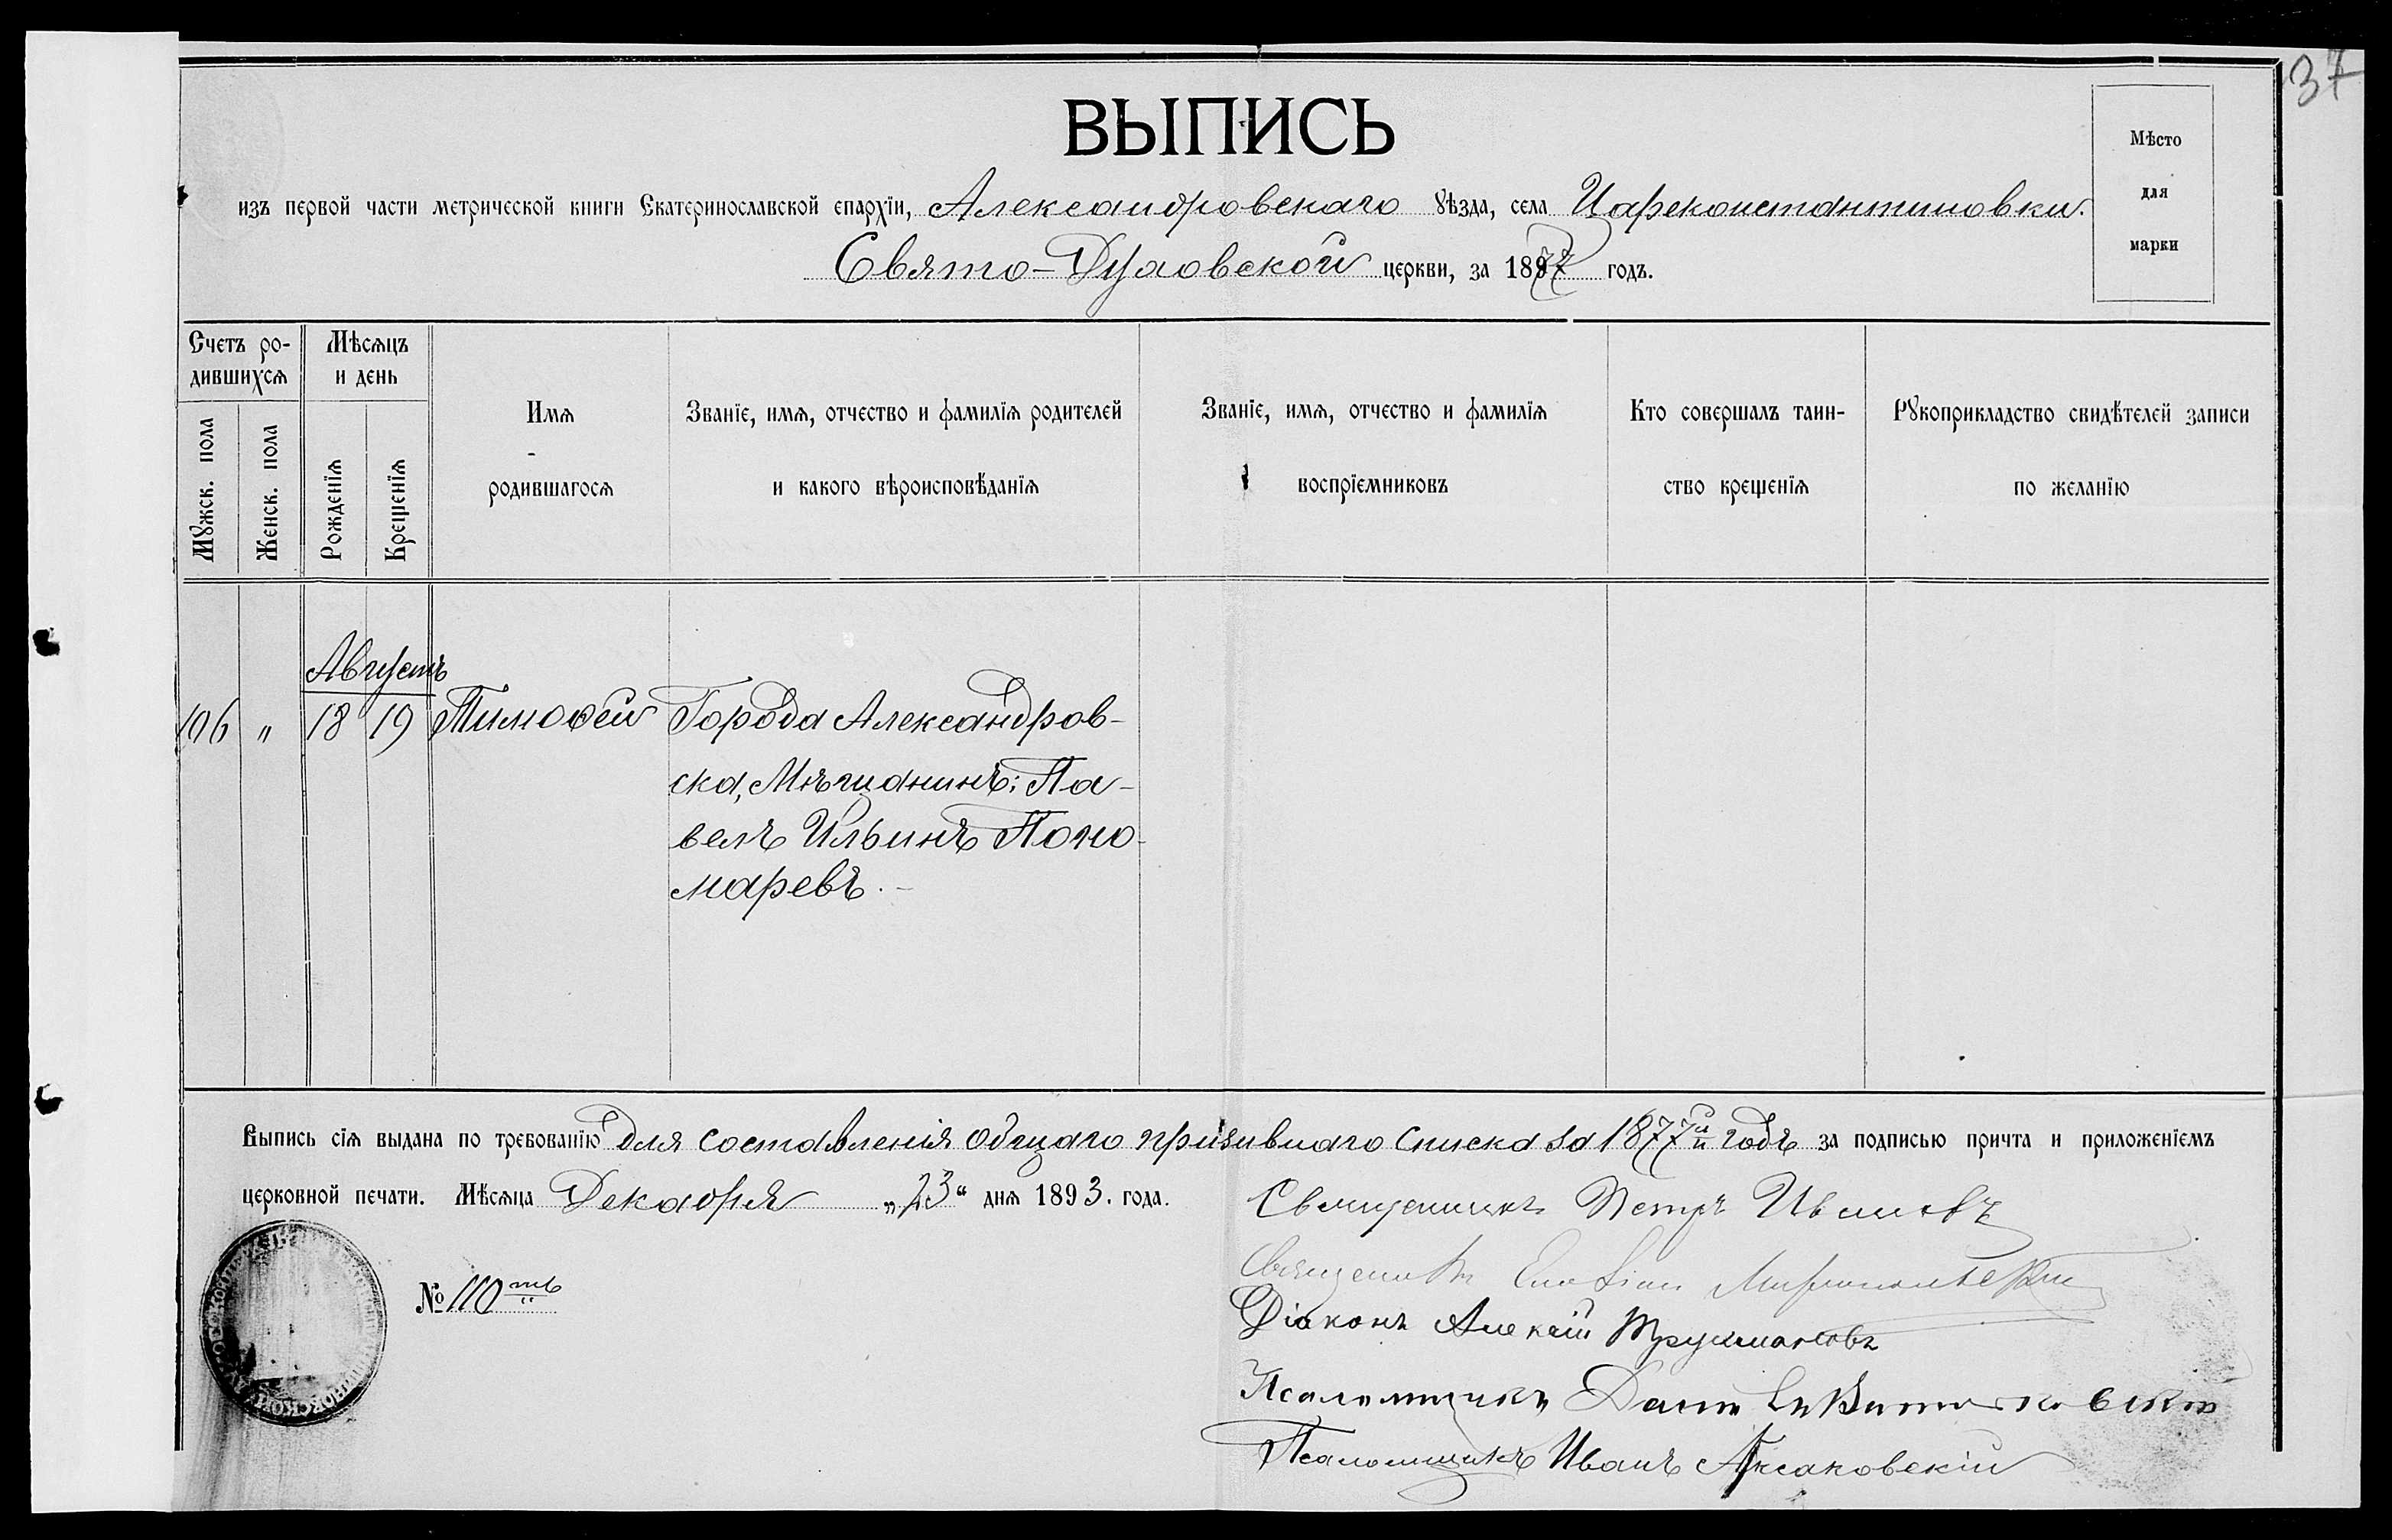 37
ВЫПИСЬ
Мѣсто
для
марки
изъ первой части метрической книги Екатеринославской епархіи, Александровскаго уѣзда, села Цареконстантиновки.
Свято-Духовской церкви, за 1877 годъ.
Счетъ ро-
дившихся
Мѣсяцъ
и день
Мужск. пола
Женск. пола
Рожденія
Крещенія
Имя
родившагося
Званіе, имя, отчество и фамилія родителей
и какого вѣроисповѣданія
Званіе, имя, отчество и фамилія
воспріемниковъ
Кто совершалъ таин-
ство крещенія
Рукоприкладство свидѣтелей записи
по желанію
Августъ
106 " 18 19 Тимоѳей Города Александров-
ска, Мѣщанинъ: Па-
велъ Ильинъ Поно-
маревъ. -
Выпись сія выдана по требованію для составленія общаго призывнаго списка за 1877й годъ за подписью причта и приложеніемъ
церковной печати. Мѣсяца Декабря „23“ дня 1893. года.
№ 110ть
Священникъ Петръ Ивановъ
Священникъ
Діаконъ Алексій
Псаломщикъ
Псаломщикъ Иванъ Аксаковскій